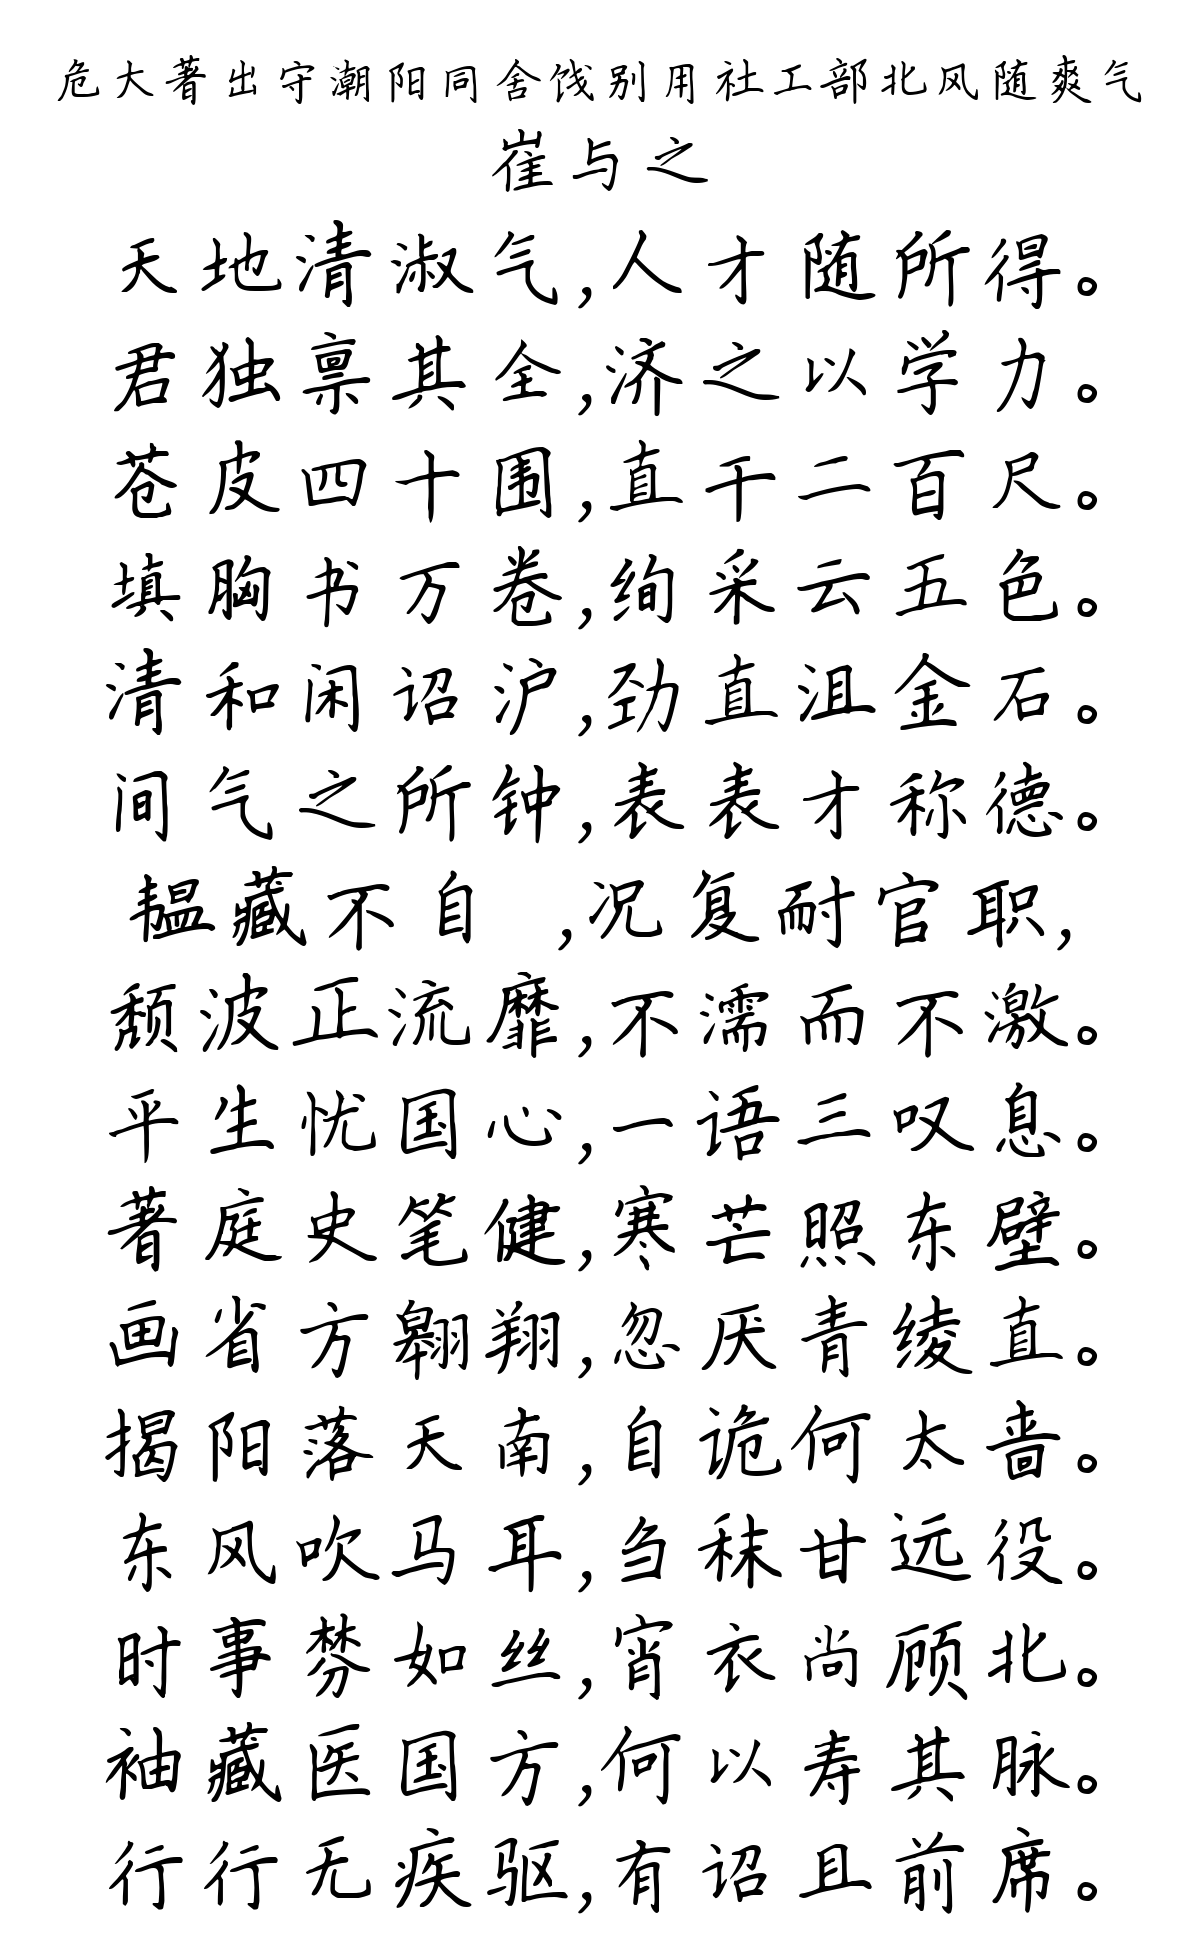 危大著出守潮阳同舍饯别用社工部北风随爽气
崔与之
天地清淑气,人才随所得。
君独禀其全,济之以学力。
苍皮四十围,直干二百尺。
填胸书万卷,绚采云五色。
清和闲诏沪,劲直沮金石。
间气之所钟,表表才称德。
韫藏不自 ,况复耐官职,
颓波正流靡,不濡而不激。
平生忧国心,一语三叹息。
著庭史笔健,寒芒照东壁。
画省方翱翔,忽厌青绫直。
揭阳落天南,自诡何太啬。
东风吹马耳,刍秣甘远役。
时事棼如丝,宵衣尚顾北。
袖藏医国方,何以寿其脉。
行行无疾驱,有诏且前席。